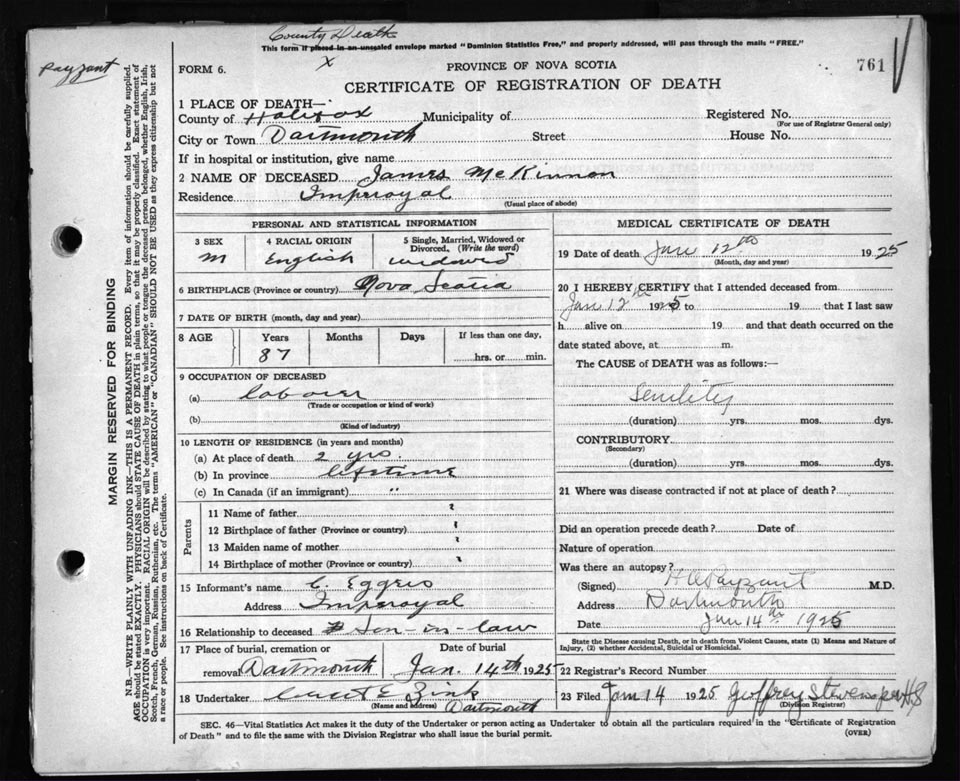 County Death
This form if placed in an unsealed envelope marked "Dominion Statistics Free," and properly addressed, will pass through the mails "FREE."
Payzant
X
761
FORM 6.
PROVINCE OF NOVA SCOTIA
CERTIFICATE OF REGISTRATION OF DEATH
1 PLACE OF DEATH—
County of Halifax Municipality of Registered No.
(For use of Registrar General only)
City or Town Dartmouth Street House No.
If in hospital or institution, give name
2 NAME OF DECEASED James McKinnon
Residence Imperoyal
(Usual place of abode)
PERSONAL AND STATISTICAL INFORMATION
3 SEX
M
4 RACIAL ORIGIN
English
5 Single, Married, Widowed or Divorced. (Write the word)
widowed
6 BIRTHPLACE (Province or country) Nova Scotia
7 DATE OF BIRTH (month, day and year)
8 AGE Years Months Days If less than one day,
87 hrs. or min.
9 OCCUPATION OF DECEASED
(a) labourer
(Trade or occupation or kind of work)
(b)
(Kind of industry)
10 LENGTH OF RESIDENCE (in years and months)
(a) At place of death 2 yrs.
(b) In province lifetime
(c) In Canada (if an immigrant) "
Parents
11 Name of father
12 Birthplace of father (Province or country)
13 Maiden name of mother
14 Birthplace of mother (Province or country)
15 Informant's name C.
Address Imperoyal
16 Relationship to deceased Son-in-law
17 Place of burial, cremation or removal Dartmouth
Date of burial
Jan. 14th 1925
18 Undertaker Zink
(Name and address) Dartmouth
MEDICAL CERTIFICATE OF DEATH
19 Date of death Jan 12th 1925
(Month, day and year)
20 I HEREBY CERTIFY that I attended deceased from
Jan 12th 1925 to 19 that I last saw
h alive on 19 and that death occurred on the
date stated above, at m.
The CAUSE of DEATH was as follows:
Senility
(duration) yrs. mos. dys.
CONTRIBUTORY
(Secondary)
(duration) yrs. mos. dys.
21 Where was disease contracted if not at place of death?
Did an operation precede death? Date of
Nature of operation
Was there an autopsy?
(Signed) Payzant M.D.
Address Dartmouth
Date Jan 14th 1925
State the Disease causing Death, or in death from Violent Causes, state (1) Means and Nature of Injury, (2) whether Accidental, Suicidal or Homicidal.
22 Registrar's Record Number
23 Filed Jan 14 1925 Geoffrey Stevens
(Division Registrar)
SEC. 46—Vital Statistics Act makes it the duty of the Undertaker or person acting as Undertaker to obtain all the particulars required in the "Certificate of Registration
of Death" and to file the same with the Division Registrar who shall issue the burial permit.
(OVER)
MARGIN RESERVED FOR BINDING
N.B.—WRITE PLAINLY WITH UNFADING INK—THIS IS A PERMANENT RECORD. Every item of information should be carefully supplied.
AGE should be stated EXACTLY. PHYSICIANS should STATE CAUSE OF DEATH in plain terms, so that it may be properly classified. Exact statement of
OCCUPATION is very important. RACIAL ORIGIN will be described by stating to what people or tongue the deceased person belonged, whether English, Irish,
Scotch, French, German, Russian, Ruthenian, etc. The terms "AMERICAN" or "CANADIAN" SHOULD NOT BE USED as they express citizenship but not
a race or people. See instructions on back of Certificate.